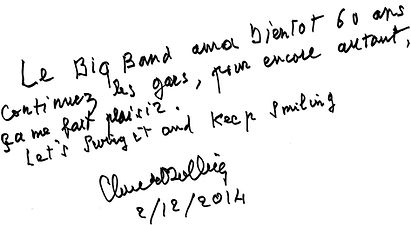 Le Big Band aura bientot 60 ans
Continuez les gars, pour encore autant,
ça me fait plaisir.
Let's swing it and keep smiling
Claude Bolling
2/12/2014